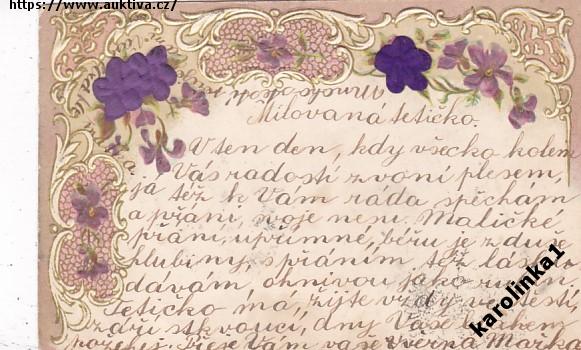 https://www.auktiva.cz/
Milovaná tetičko.
V ten den, kdy všecko kolem
Vás radostí zvoní plesem,
já též k Vám ráda spěchám
a přání svoje nesu. Maličké
přání, upřímné, béřu je z duše
hlubiny, s přáním též lásku
dávám, ohnivou jako rubín.
Tetičko má, žijte vždy ve štěstí,
září skvoucí, dny Vaše během
Přeje Vám vaše věrná Mařka
karolinka1